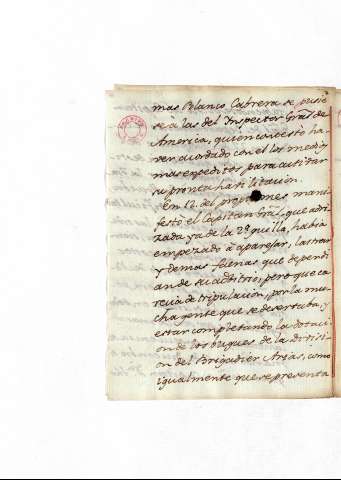 mas Blanco Cabrera se pusie
se à las del Inspector Gral de
America, quien contestó ha
ver acordado con el los medios
mas expeditos para activar
su pronta havilitacion.
En 12. del pro mes mani
festó el Capitan Gral, que adri
zada ya de la 2ª quilla, havia
empezado à aparejar, lastrar
y demas faenas que dependi
an de su arbitrio; pero que ca
recia de tripulacion, por la mu
cha gente que se desertaba, y
estar completando la dotaci
on de los buques de la divisi
on del Brigadier Arias, como
igualmente que se presenta